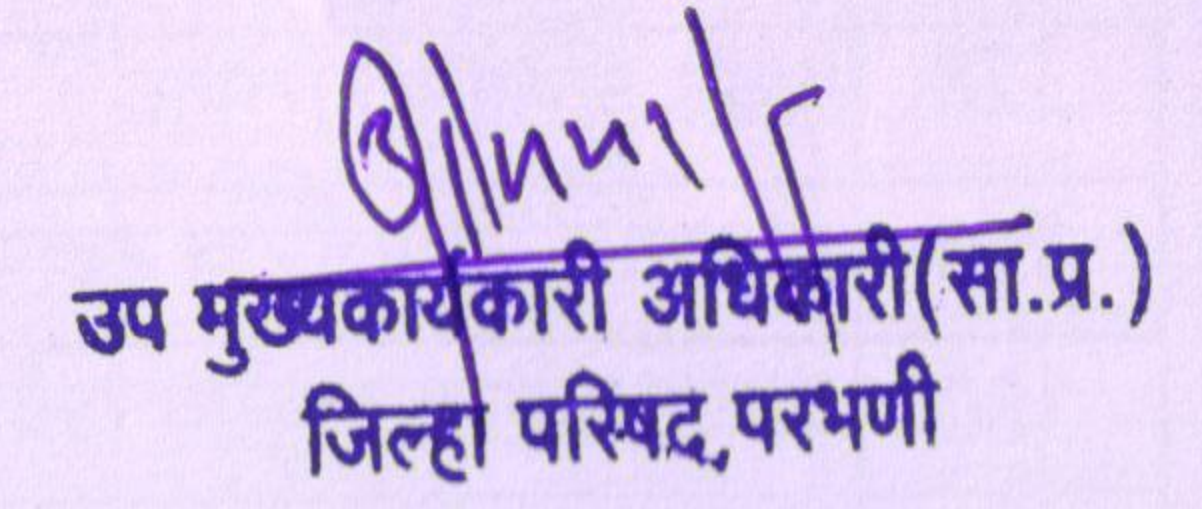 उप मुख्यकार्यकारी अधिकारी(सा.प्र.)
जिल्हा परिषद, परभणी